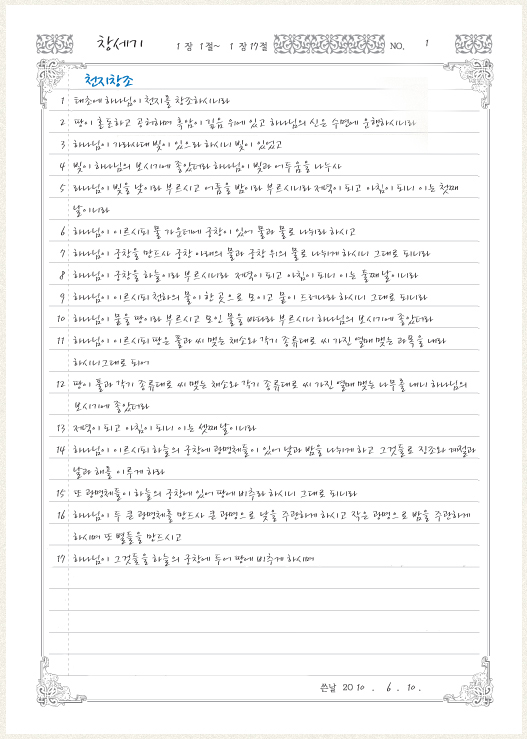 창세기 1장 1절~ 1장 17절 NO. 1
천지창조
1 태초에 하나님이 천지를 창조하시니라
2 땅이 혼돈하고 공허하며 흑암이 깊음 위에 있고 하나님의 신은 수면에 운행하시니라
3 하나님이 가라사대 빛이 있으라 하시니 빛이 있었고
4 빛이 하나님의 보시기에 좋았더라 하나님이 빛과 어두움을 나누사
5 하나님이 빛을 낮이라 부르시고 어둠을 밤이라 부르시니라 저녁이 되고 아침이 되니 이는 첫째
날이니라
6 하나님이 이르시되 물 가운데에 궁창이 있어 물과 물로 나뉘라 하시고
7 하나님이 궁창을 만드사 궁창 아래의 물과 궁창 위의 물로 나뉘게 하시니 그대로 되니라
8 하나님이 궁창을 하늘이라 부르시니라 저녁이 되고 아침이 되니 이는 둘째 날이니라
9 하나님이 이르시되 천하의 물이 한 곳으로 모이고 뭍이 드러나라 하시니 그대로 되니라
10 하나님이 뭍을 땅이라 부르시고 모인 물을 바다라 부르시니 하나님의 보시기에 좋았더라
11 하나님이 이르시되 땅은 풀과 씨 맺는 채소와 각기 종류대로 씨 가진 열매 맺는 과목을 내라
하시니 그대로 되어
12 땅이 풀과 각기 종류대로 씨 맺는 채소와 각기 종류대로 씨 가진 열매 맺는 나무를 내니 하나님의
보시기에 좋았더라
13 저녁이 되고 아침이 되니 이는 셋째 날이니라
14 하나님이 이르시되 하늘의 궁창에 광명체들이 있어 낮과 밤을 나뉘게 하고 그것들로 징조와 계절과
날과 해를 이루게 하라
15 또 광명체들이 하늘의 궁창에 있어 땅에 비추라 하시니 그대로 되니라
16 하나님이 두 큰 광명체를 만드사 큰 광명으로 낮을 주관하게 하시고 작은 광명으로 밤을 주관하게
하시며 또 별들을 만드시고
17 하나님이 그것들을 하늘의 궁창에 두어 땅에 비추게 하시며
쓴날 2010 . 6 . 10 .